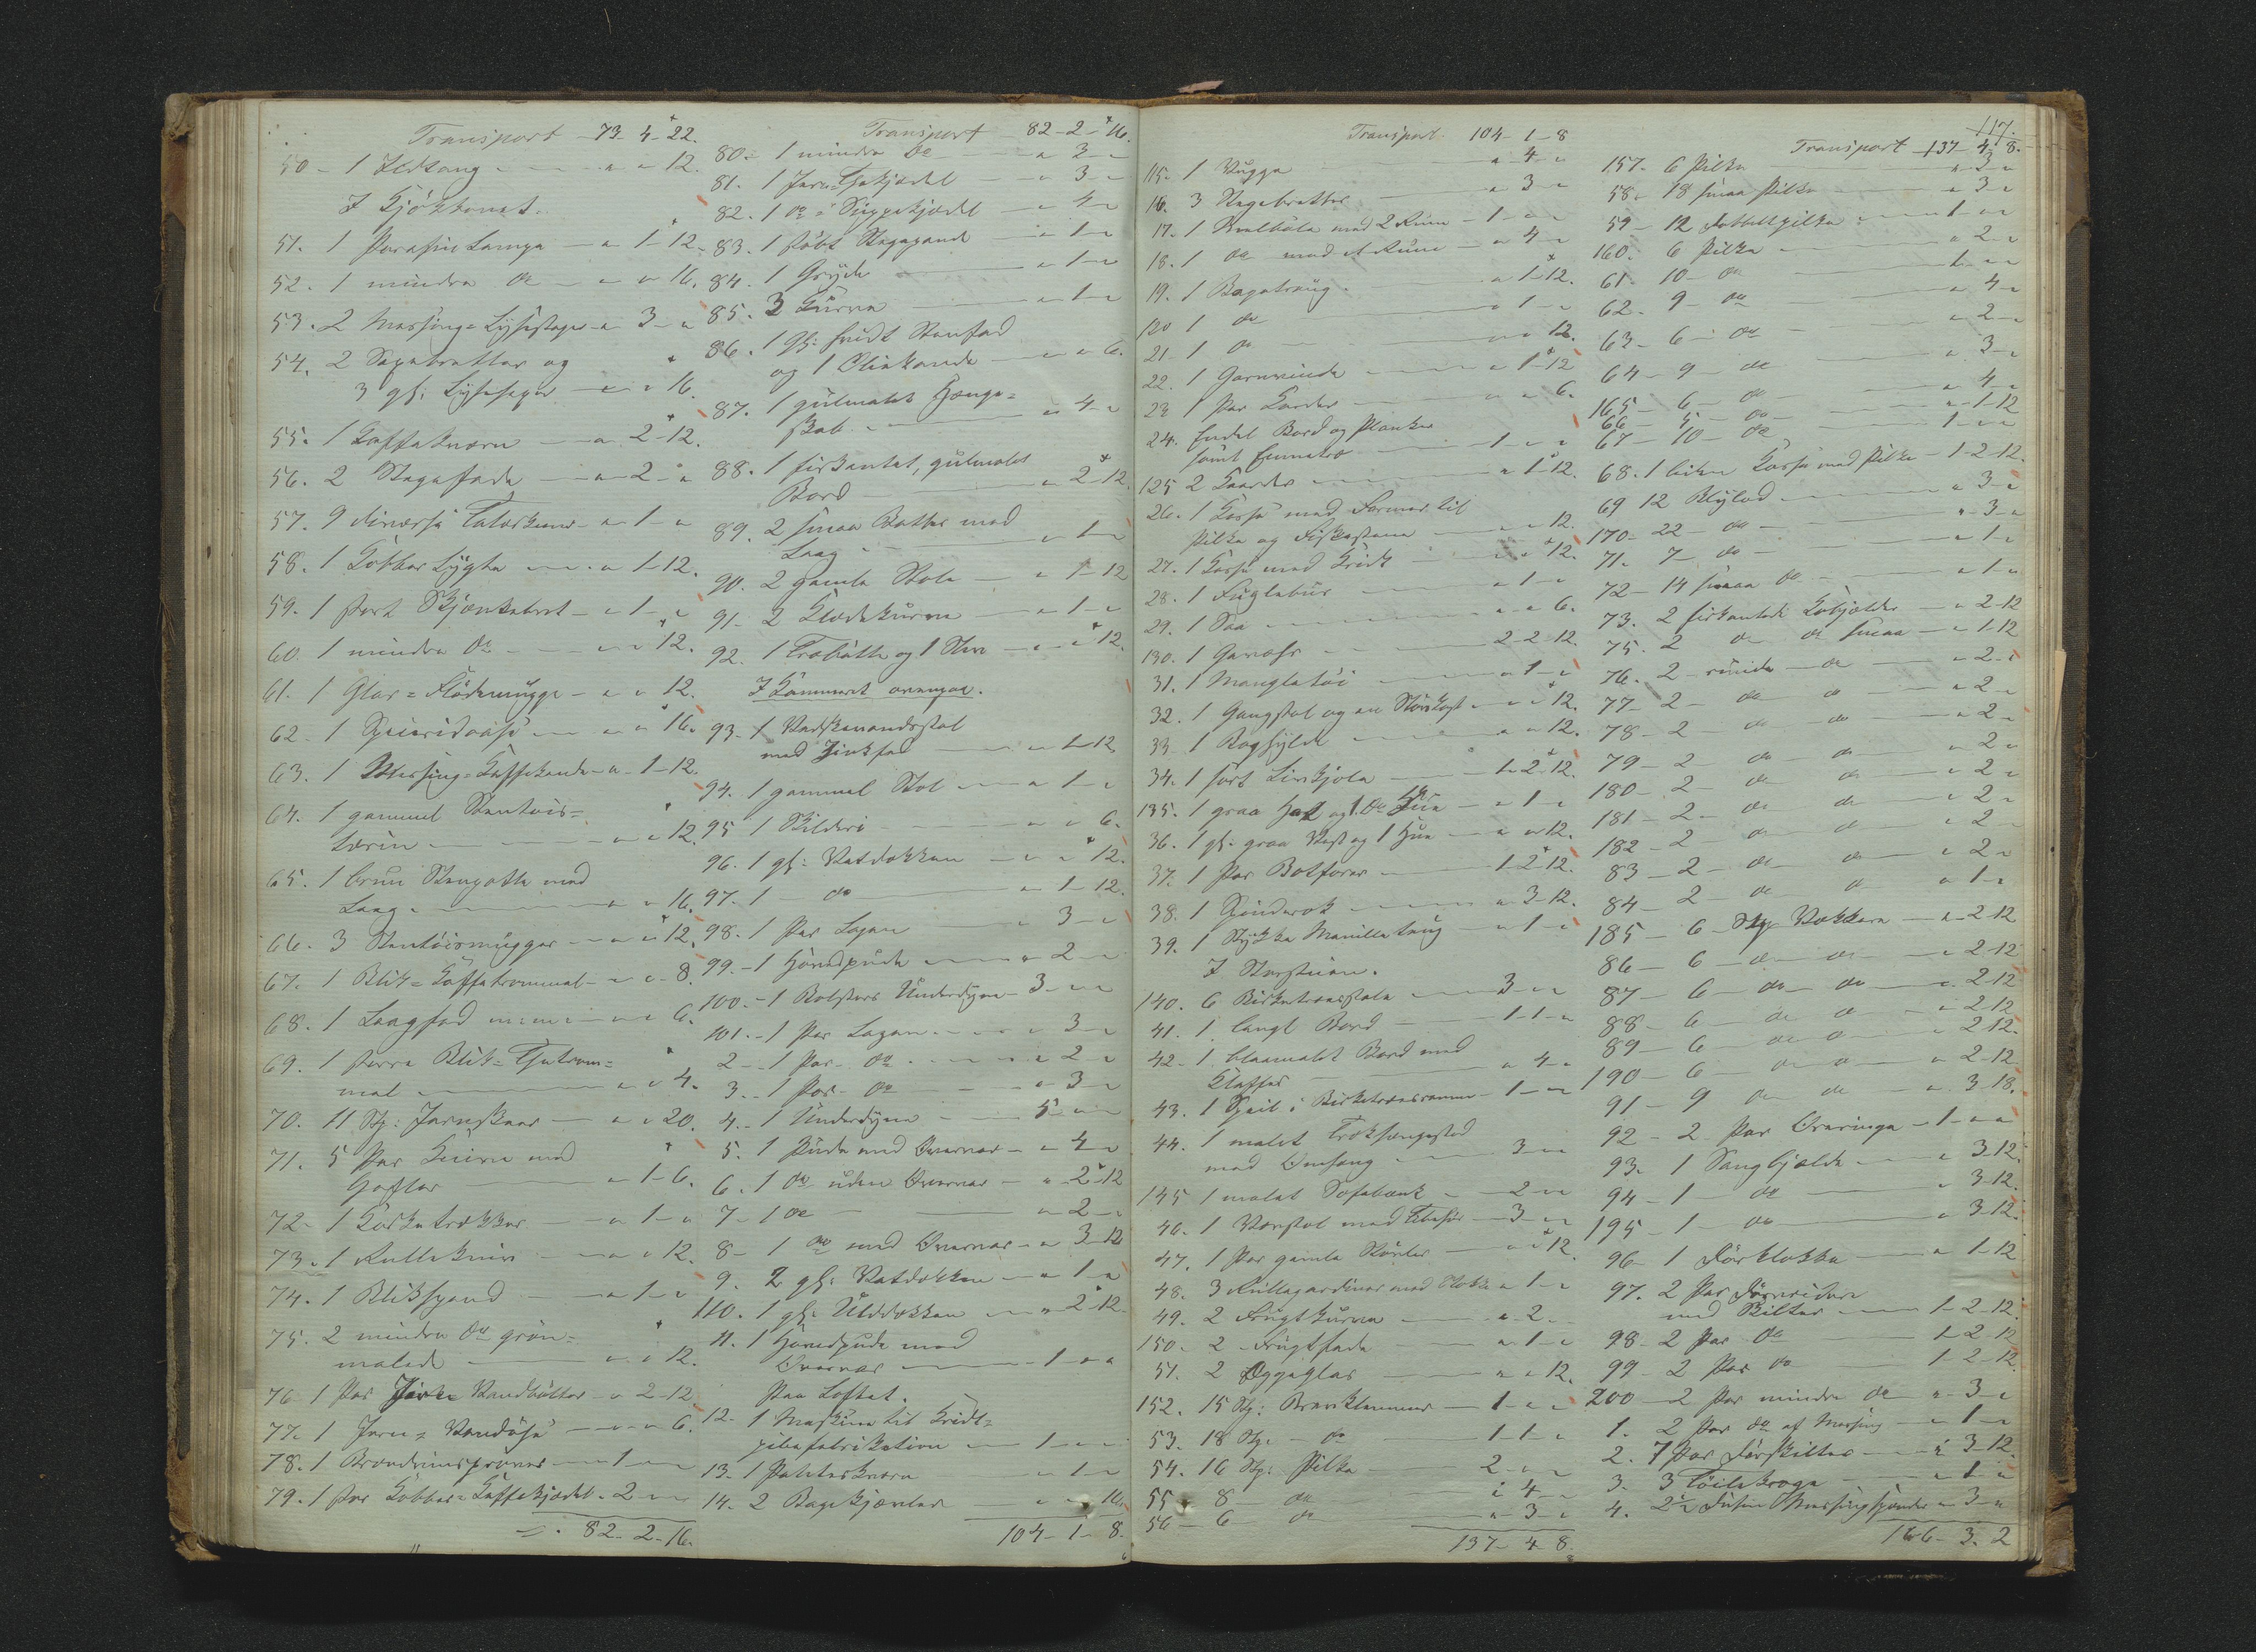 Transport 73-4-22.
50 - 1 Ildtang - " " 12.
I Kjøkkenet.
51. 1 Parafin Lampe - " 1-12.
52. 1 mindre do - " " 16.
53. 2 Messing-Lysestager " 3 "
54. 2 Præsentbretter og
3 gl: Lysesager " " 16.
55. 1 Kaffekværn - " 2-12.
56. 2 Stegefade - " 2 "
57. 9 diverse Talerkener " 1 "
58. 1 Kobber Lygte " 1-12.
59. 1 stort Skjænkebret " 1 "
60. 1 mindre do - " " 12.
61. 1 Glas-Flødemugge - " " 12.
62. 1 " " 16.
63. 1 Messing-Kaffekande " 1-12.
64. 1 gammel Stentøis-
terin " " 12.
65. 1 brun Stenpotte med
Laag " " 16.
66. 3 Stentøismugger " " 12.
67. 1 Blik-Kaffetrommel " " 8.
68. 1 Laagfad " " 6.
69. 1 større Blik-Thetrom-
mel " " 4.
70. 11 St: Jernskeer " " 20.
71. 5 Par Knive med
Gafler " 1-6.
72. 1 Korketrækker " 1 "
73. 1 Rullekniv " " 12.
74. 1 Blikspand " 1 "
75. 2 mindre do grøn-
malede " " 12.
76. 1 Par Vandbøtter " 2-12
77. 1 Jern-Vandøse " " 6.
78. 1 " 1 "
79. 1 stor Kobber-Kaffekjedel 2 " "
82-2-16.
Transport 82-2-16.
80. 1 mindre do " 2 "
81. 1 Jern-Thekjedel " 3 "
82. 1 do Suppekjedel " 4 "
83. 1 støbt Stegepande " 1 "
84. 1 Gryde " 1 "
85. 3 Kurve " 1 "
86. 1 gl: hvidt Stenfad
og 1 Blikkande " " 6.
87. 1 gulmalet Hænge-
skab " 4 "
88. 1 firkantet, gulmalet
Bord " 2-12
89. 2 smaa Bøtter med
Laag " 1 "
90. 2 gamle Stole " 1-12
91. 2 Klædekurve " 1 "
92. 1 Træbøtte og 1 " " 12.
I Kammeret ovenpaa.
93. 1 Vadskevandsstol
med Zinkfad " 1-12
94. 1 gammel Stol " 1 "
95 1 Skilderi " " 6.
96. 1 gl: Vatdækken " " 12.
97. 1 do " 1-12.
98. 1 Par Lagen " 3 "
99. 1 Hovedpude " 2 "
100. 1 Bolsters Underdyne 3 " "
101. 1 Par Lagen " 3 "
2 1 Par do " 2 "
3. 1 Par do " 3 "
4. 1 Underdyne 5 " "
5. 1 Pude med Overvar " 4 "
6. 1 do uden Overvar " 2-12
7 1 do " 2 "
8 1 do med Overvar " 3-12
9. 2 gl: Vatdækken " 1 "
110. 1 gl: Ulddækken " 2-12.
11. 1 Hovedpude med
Overvar 1 " "
Paa Loftet.
12. 1 Maskine til Kridt-
pibefabrikation 1 " "
13. 1 " 1 "
14. 2 Bagekjævler " " 16.
104-1-8.
117.
Transport 104-1-8
115. 1 Vugge " 4 "
16. 3 Stegebretter " 3 "
17. 1 med 2 Rum 1 " "
18. 1 do med et Rum " 4 "
19. 1 Bagetrug " 1-12.
120 1 do " 1 "
21. 1 do " " 12.
22. 1 Garnvinde " 1-12
23 1 Par Karder " " 6.
24. Endel Bord og Planker
samt Emnetræ 1 " "
125 2 Kaarder " 1-12.
26. 1 Kasse med Former til
Pilke og Fiskestene " " 12.
27. 1 Kasse med Kridt " " 12.
28. 1 Fuglebuur " 1 "
29. 1 Saa " " 6.
130. 1 Gevær 2-2-12.
31. 1 Mangletøi " 1 "
32. 1 Gangstol og en " " 12.
33. 1 Boghylde " " 12.
34. 1 sort Livkjole 1-2-12.
135. 1 graa Hat og 1 do Hue " 1 "
36. 1 gl: graa Vest og 1 Hue " " 12.
37. 1 Par Botforer 1-2-12.
38. 1 Spinderok " 3-12.
39. 1 Stykke Manilla taug " 1 "
I Storstuen.
140. 6 Birketræsstole 3 " "
41. 1 langt Bord 1-1 "
42. 1 blaamalet Bord med
Klaffer " 4 "
43. 1 Speil i Birketræsramme 1 " "
44. 1 malet Træksengested
med Omhæng 3 " "
145 1 malet Sofabænk 2 " "
46. 1 Vævstol med Tilbehør 3 " "
47. 1 Par gamle Støvler " " 12.
48. 3 Rullegardiner med Klokke " 1 "
49. 2 Frugtkurve " 2 "
150. 2 Frugtfade " 1 "
51. 2 Æggeglas " " 12.
152. 15 St: Brevklemmer 1 " "
53. 18 St. do 1-1 "
54. 16 St: Pilke 2 " "
55 8 do " 4 "
56 - 6 do " 3 "
137-4-8.
Transport 137-4-8.
157. 6 Pilke " 3 "
58. 18 smaa Pilke " 3 "
59 - 12 Dobbeltpilke 1 " "
160. 6 Pilke " 2 "
61. 10 do 1 " "
62. 9 do " 4 "
63 - 6 do " 2 "
64 - 9 do " 3 "
165 - 6 do " 4 "
66 - 5 do " 1-12
67 - 10 do 1 " "
68. 1 liden Kasse med Pilke 1-2-12.
69 12 Blylod " 3 "
170 - 22 do " 3 "
71. 7 do " 1 "
72 - 14 smaa do " 1 "
73. 2 firkantede Kobjelder " 2-12
75. 2 do do smaa " 1-12
76. 2 runde do " 2 "
77 - 2 do do " 2 "
78 - 2 do do " 2 "
79 - 2 do do " 2 "
180 - 2 do do " 2 "
181 - 2 do do " 2 "
182 - 2 do do " 2 "
83 - 2 do do " 2 "
84 - 2 do do " 1 "
185 - 6 St: Vækkere " 2-12
86 - 6 do do " 2-12
87 - 6 do do " 2-12
88 - 6 do do " 2-12
89 - 6 do do " 2-12.
190 - 6 do do " 2-12
91 - 9 do do " 3-18.
92 - 2 Par Øreringe 1 " "
93. 1 Sangbjælde " 3-12.
94 - 1 do " 3-12.
195 - 1 do " 3-12.
96 - 1 Dørklokke " 1-12
97. 2 Par Dørvridere
med Skilter 1-2-12.
98 - 2 Par do 1-2-12
99 - 2 Par do 1-2-12.
200 - 2 Par mindre do " 3 "
1. 2 Par do af Messing " 1 "
2. 7 Par Dørskilter " 3-12
3. 3 Tøilekroge " 1 "
4. 2½ Dusin Messingspænder " 3 "
166-3-2